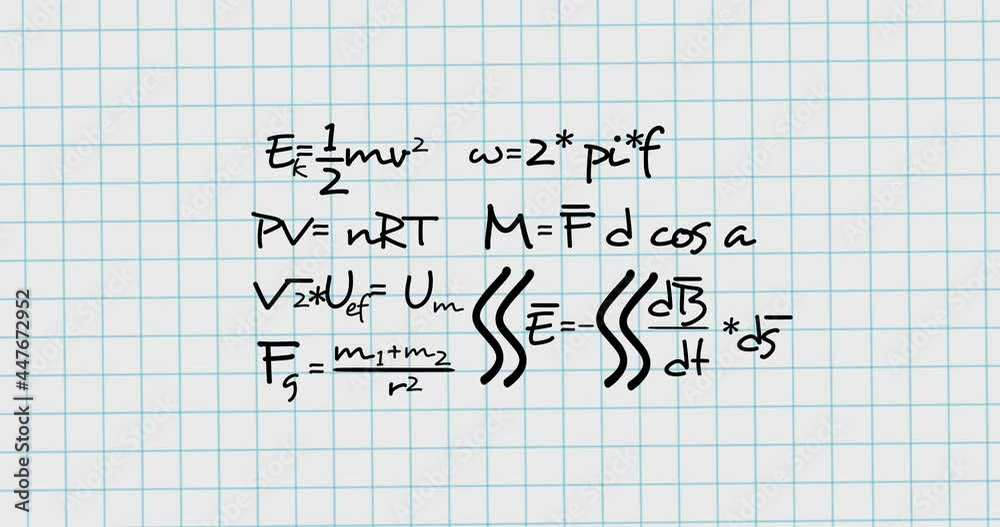 Eₖ=½mv² ω=2*pi*f
PV= nRT M=F̅ d cos a
√2*U_ef= U_m ∬E̅=-∬dB̅/dt *ds̅
F_g=m₁+m₂/r²
Adobe Stock | #447672952